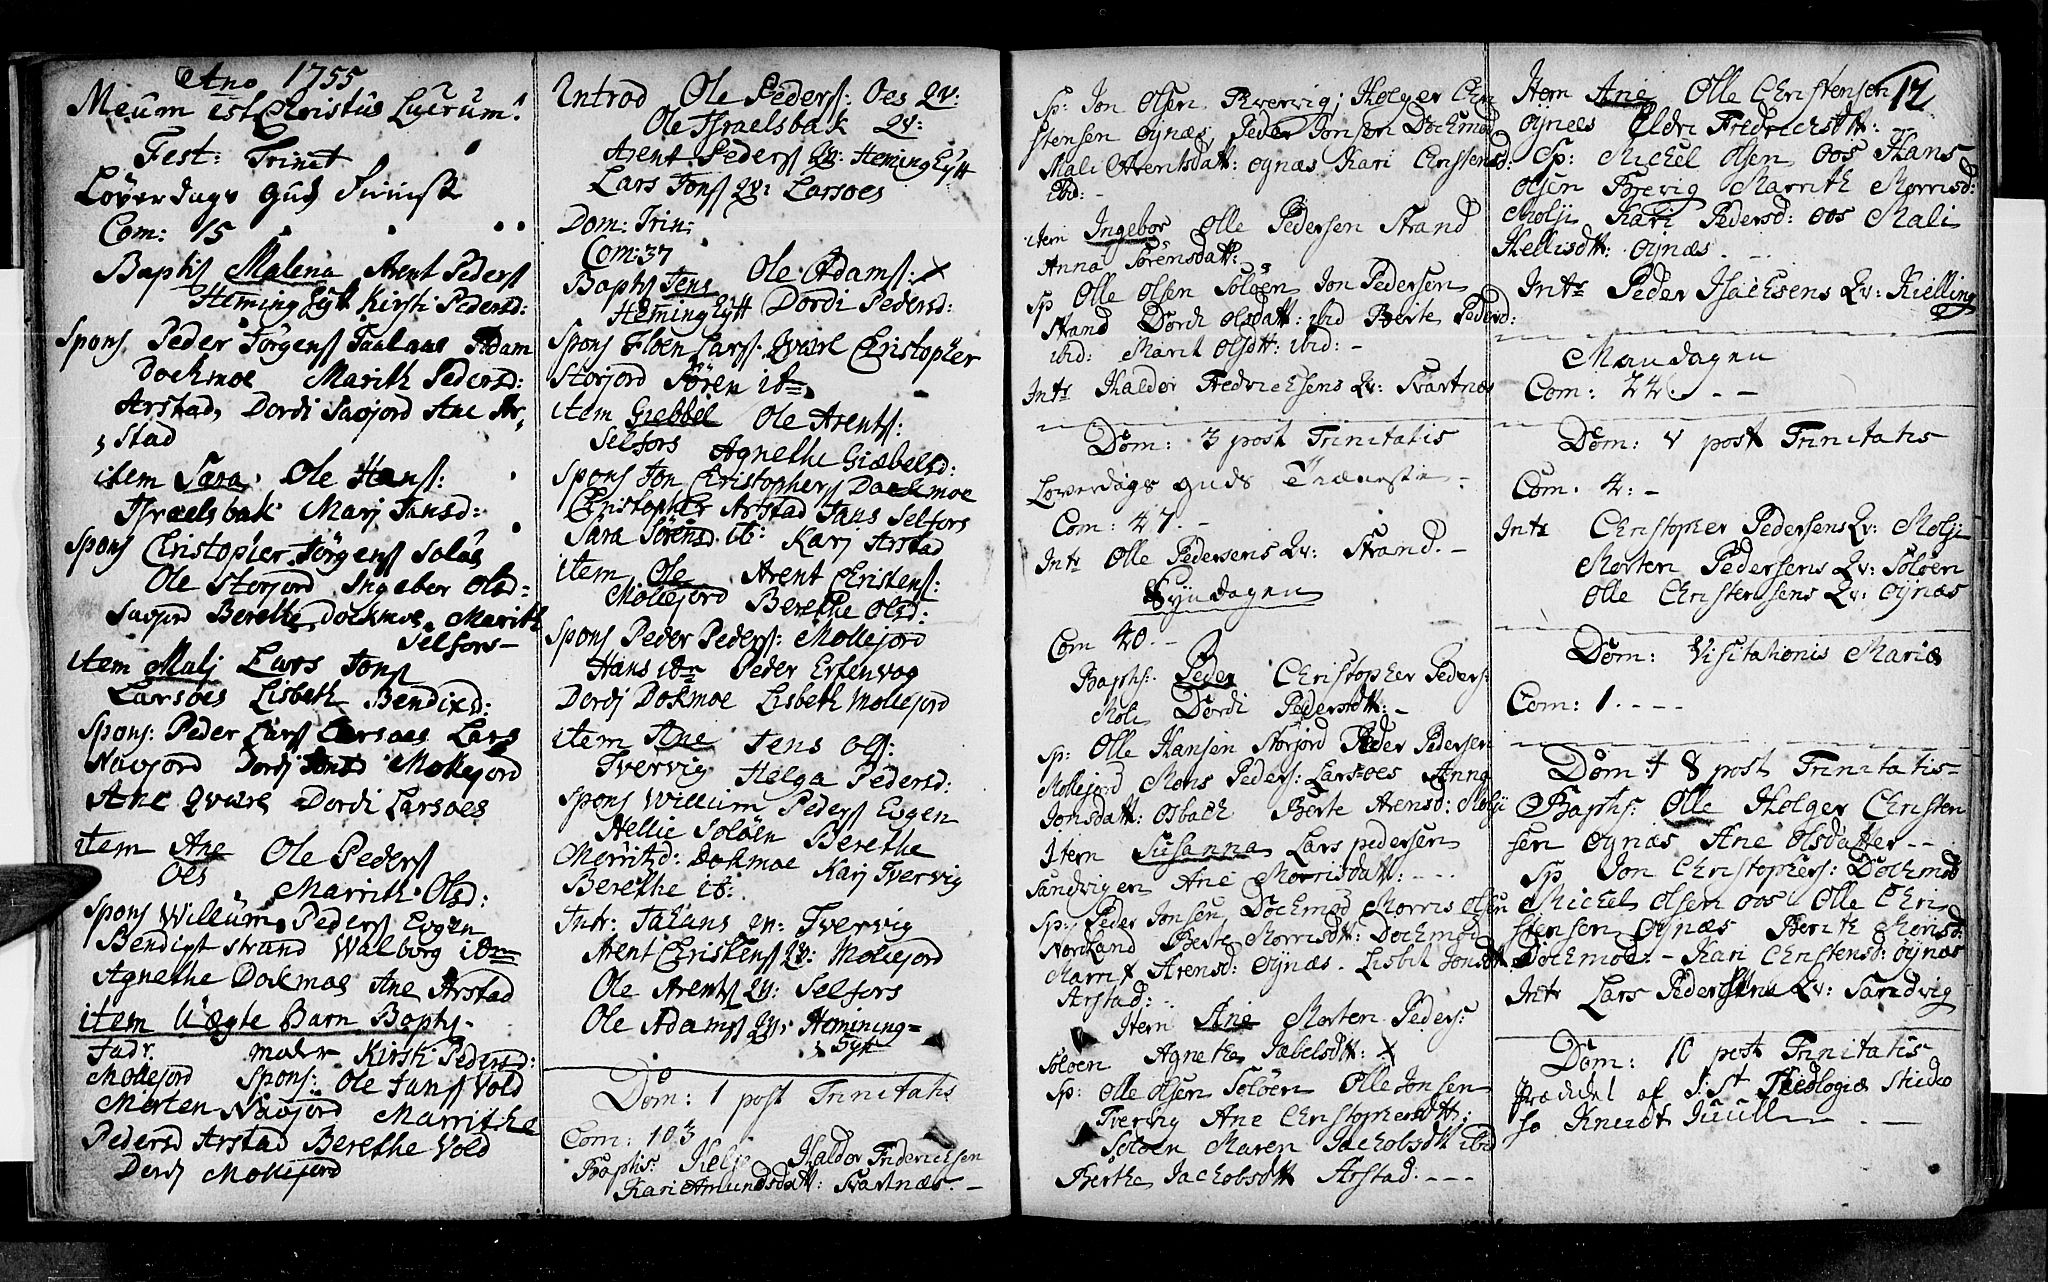 Ano 1755
Meum est Christus Lucrum
Fest: Trinit
Løverdags Guds
Com: 15
Baptis Malena Arent Peders
Hemingsytt Kirsti Pedersd:
Spons Peder Jørgens Adam
Dockmoe Marith Pedersd:
Arstad, Dordi Savjord Ane Ar,
, stad
item Sara. Ole Hans:
Israelsbak Marj Jansd:
Spons Christopher Jørgens Soløs
Ole Storjord Ingebor Olsd:
Savjord Berethe Dockmoe Marith
Selfors—
item Malj Lars Jons
Larsoes Lisbeth Bendixd:
Spons: Peder Lars Larsoes Lars
Navjord Dordj Jonsd Mollejord
Ane Qvære Dordi Larsoes
item Ane Ole Peders
Oes Marrith Olsd:
Spons Willum Peders Evgen
Bendigt Strand Walborg ibm
Agnethe Dokmoe Ane Arstad
item Uægte Barn Bapts.
Fadr. moder Kirsti Pedersd:
Mollejord Spons: Ole Jans Vold
Morten Navjord Marrithe
Pedersd Arstad Berethe Vold
Dordj Mollejord
Introd Ole Peders: Oes Qv:
Ole Israelsbak Qv:
Arent Peders Qv: Hemingsytt
Lars Jons Qv: Larsoes
Dom: Trin:
Com: 37
Bapts Jens Ole Adams: x
Hemingsytt Dordi Pedersd:
Spons Floen Lars: Qvære Christopher
Storjord Søren ibm
item Giebbel Ole Arents:
Selfors Agnethe Giæbelsd:
Spons Jon Christophers Dockmoe
Christopher Arstad Jans Selfors
Sara Sørensd ib: Karj Arstad
item Ole Arent Christens:
Mollejord Berethe Olsd:
Spons Peder Peders: Mollejord
Hans ibm Peder Ertenvog
Dordj Dokmoe Lisbeth Mollejord
item Ane Jens Ols:
Tvervig Helga Pedersd:
Spons Willum Peders Evgen
Hellie Soløen Berethe
Merritzd: Dokmoe Karj Tvervig
Berethe ib:
Intr: Qv: Tvervig
Arent Christens Qv: Mollejord
Ole Arents Qv: Selfors
Ole Adams Qv: Hemining=
, sytt
Dom: 1 post Trinitatis
Com: 103
Baptis: Haldor Friderichsen
Kari Amundsdatt: Svartnæs.—
Sp: Jon Olsen Tverrvig; Holger Chri
stensen Øynæs, Peder Jonsen Dockmoe
Mali Arentsdatt: Øynæs Kari Christensd:
ibd:—
item Ingebor Olle Pedersen Strand
Anna Sørensdatt:
Sp Olle Olsen Soløen Jon Pedersen
Strand Dordi Olsdatt: ibid Berte Pedersd:
ibid: Marit Olsdtt: ibid:—
Intr Haldor Fredrichsens Qv: Svartnæs
Dom: 3 post Trinitatis
Løverdags Guds Tieneste.
Com: 47.—
Intr Olle Pedersens Qv: Strand.—
Syndagen
Com 40.—
Bapts: Peder Christopher Peders:
Moli Dordi Pedersdtt:—
Sp: Olle Hansen Storjord Peder Pedersen
Mollejord Mons Peders: Larsoes Anna
Jonsdatt: Osbach Berte Arensd: Molji
Item Susanna Lars pedersen
Sandvigen Ane Morrisdatt:
Sp: Peder Jonsen, Dockmod Morris Olsen
Nordland Berte Morrisdtt: Dockmod
Marrit Arensd: Øynæs. Lisbet Jonsdtt
Arstad:
Item Ane Morten Peders:
Soløen Agnethe Jabelsdtt: x
Sp: Olle Olsen Soløen Olle Jonsen
Tvering Ane Christophersdtt:
Soløen Maren Jachobsdtt ibid
Berthe Jachobsdtt Arstad:
12
Item Ane Olle Christensen
Øynees Eldri Fredrichsdtt:
Sp: Michel Olsen Oos Hans
Olsen Forevig Marrith Morrisd:
Molji Kari Pedersd: Oos Mali
Hellisdtt: Øynæs.
Intr Peder Isachsens Qv: Kielling
Mandagen
Com: 22.
Dom: V post Trinitatis
Com. 4:—
Intr Christopher Pedersens Qv: Molji
Morten Pedersens Qv: Soløen
Olle Christensens Qv: Øynæs
Dom: Visitationis Mariæ
Com: 1.
Dom: 8 post Trinitatis—
Bapts: Olle Holger Christen
sen Øynæs Ane Olsdatter—
Sp Jon Christophers: Dockmod
Michel Olsen Oos Olle Chri
stensen Øynæs Berit Morisd:
Dockmod:— Kari Christensd: Øynæs
Intr Lars Pedersens Qv: Sandvig
Dom: 10 post Trinitatis
Prædiket af S:St Theologiæ Studio
so Knudt Juull